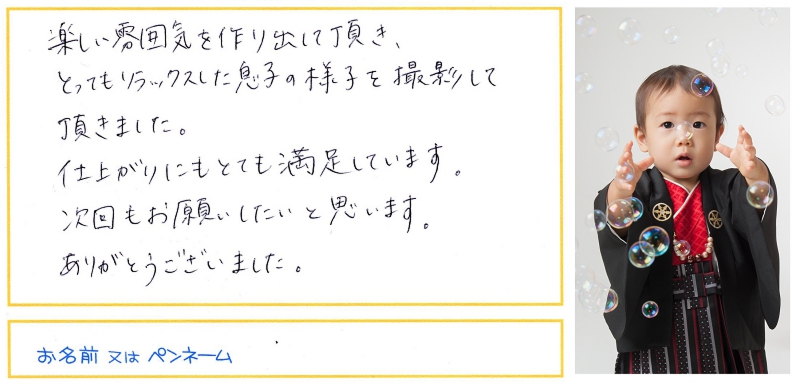 楽しい雰囲気を作り出して頂き、
とってもリラックスした息子の様子を撮影して
頂きました。
仕上がりにもとても満足しています。
次回もお願いしたいと思います。
ありがとうございました。
お名前 又は ペンネーム